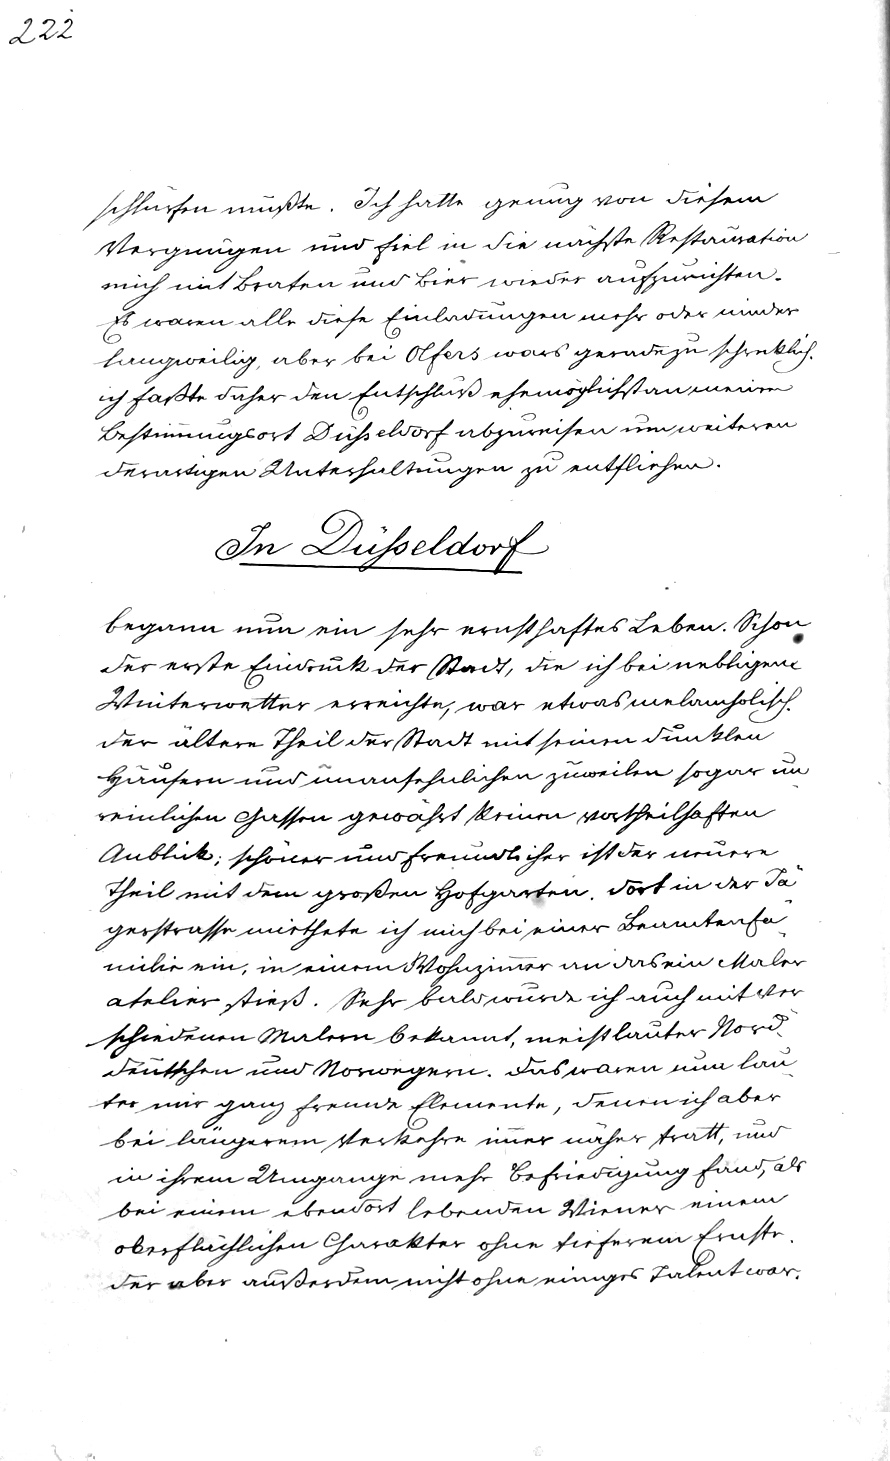 222
schlürfen mußte. Ich hatte genug von diesem
Vergnügen und fiel in die nächste Restauration
mich mit Braten und Bier wieder aufzurichten.
Es waren alle diese Einladungen mehr oder minder
langweilig, aber bei Olfers wars geradezu schreklich.
ich faßte daher den Entschluß ehemöglichst an meinen
Bestimmungsort Düsseldorf abzureisen um weiteren
derartigen Unterhaltungen zu entfliehen.
In Düsseldorf
begann nun ein sehr ernsthaftes Leben. Schon
der erste Eindruck der Stadt, die ich bei nebligem
Winterwetter erreichte, war etwas melancholisch.
der ältere Theil der Stadt mit seinen dunklen
Häusern und unansehnlichen zuweilen sogar un
reinlichen Gassen gewährt keinen vortheilhaften
Anblick; schöner und freundlicher ist der neuere
Theil mit dem großen Hofgarten. dort in der Jä
gerstrasse miethete ich mich bei einer Beamtenfa
milie ein, in einem Wohnzimmer an das ein Maler
atelier stieß. Sehr bald wurde ich auch mit ver
schiedenen Malern bekannt, meist lauter Nord
deutschen und Norwegern. das waren nun lau
ter mir ganz fremde Elemente, denen ich aber
bei längerem Verkehre immer näher tratt, und
in ihrem Umgange mehr Befriedigung fand, als
bei einem ebendort lebenden Wiener einem
oberflächlichen Charakter ohne tieferem Ernste.
der aber außerdem nicht ohne einiges Talent war.